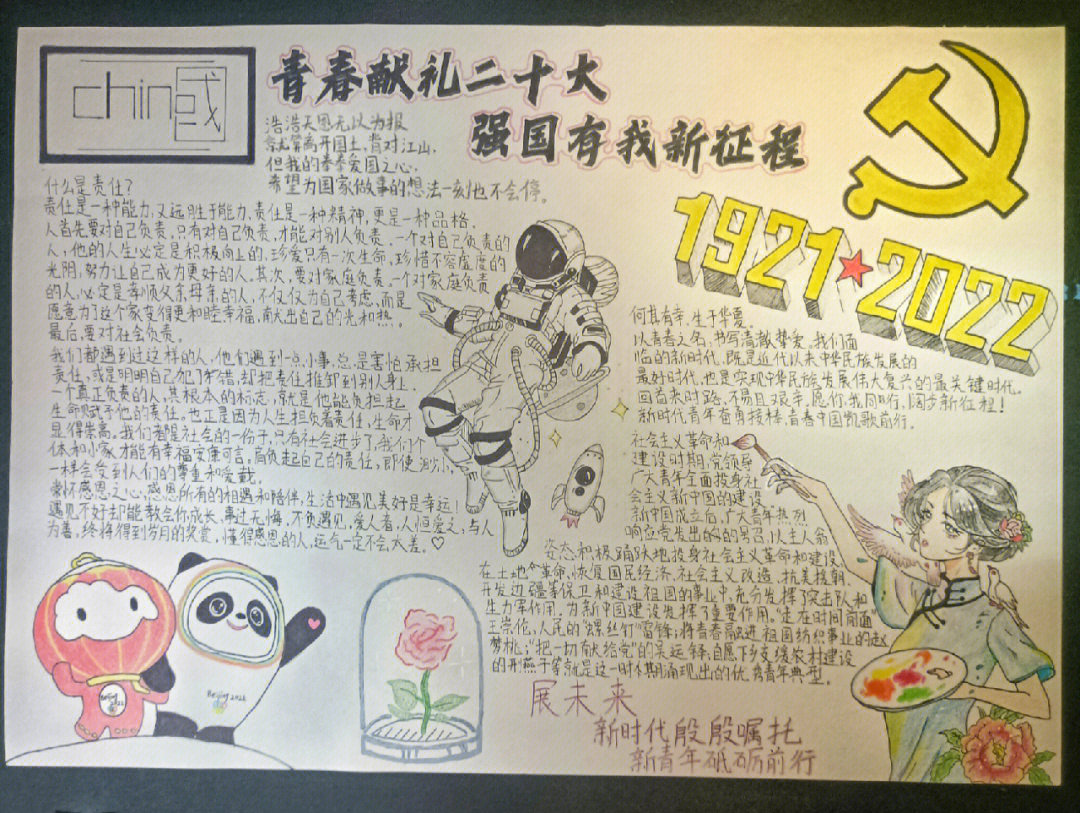 chin国
青春献礼二十大
强国有我新征程
浩浩天恩无以为报
就算离开国土，背对江山，
但我的拳拳爱国之心，
希望为国家做事的想法一刻也不会停。
什么是责任？
责任是一种能力，又远胜于能力，责任是一种精神，更是一种品格。
人首先要对自己负责，只有对自己负责，才能对别人负责。一个对自己负责的
人，他的人生必定是积极向上的，珍爱只有一次生命，珍惜不容虚度的
光阴，努力让自己成为更好的人。其次，要对家庭负责。一个对家庭负责
的人，必定是孝顺父亲母亲的人，不仅仅为自己考虑，而是
愿意为了这个家变得更和睦幸福，献出自己的光和热。
最后，要对社会负责。
我们都遇到过这样的人，他们遇到一点小事，总是害怕承担
责任，或是明明自己犯了错，却把责任推卸到别人身上，
一个真正负责的人，其根本的标志，就是他能负担起
生命赋予他的责任，也正是因为人生担负着责任，生命才
显得崇高。我们都是社会的一份子，只有社会进步了，我们个
体和小家才能有幸福安康可言。肩负起自己的责任，即使渺小，
一样会受到人们的尊重和爱戴。
常怀感恩之心，感恩所有的相遇和陪伴，生活中遇见美好是幸运！
遇见不好却能教会你成长，事过无悔，不负遇见，爱人者，人恒爱之，与人
为善，终将得到岁月的奖赏，懂得感恩的人，运气一定不会太差。♡
1921★2022
何其有幸，生于华夏。
以青春之名，书写清澈挚爱。我们面
临的新时代，既是近代以来中华民族发展的
最好时代，也是实现中华民族发展伟大复兴的最关键时代。
回首来时路，不易且艰辛，愿你我同行，阔步新征程！
新时代青年奋勇接棒，青春中国凯歌前行。
社会主义革命和
建设时期，党领导
广大青年全面投身社
会主义新中国的建设
新中国成立后，广大青年热烈
响应党发出的的号召，以主人翁
姿态积极踊跃地投身社会主义革命和建设、
在土地个革命，恢复国民经济、社会主义改造、抗美援朝、
开发边疆等保卫和建设祖国的事业中，充分发挥了突击队和
生力军作用，为新中国建设发挥了重要作用。“走在时间前面
王崇伦，人民的“螺丝钉”雷锋；将青春融进祖国纺织事业的赵
梦桃；“把一切献给党”的吴运铎；自愿下乡支援农村建设
的邢燕子等就是这一时个期涌现出的优秀青年典型。
展未来
新时代殷殷嘱托
新青年砥砺前行
Beijing 2022
Beijing 2022